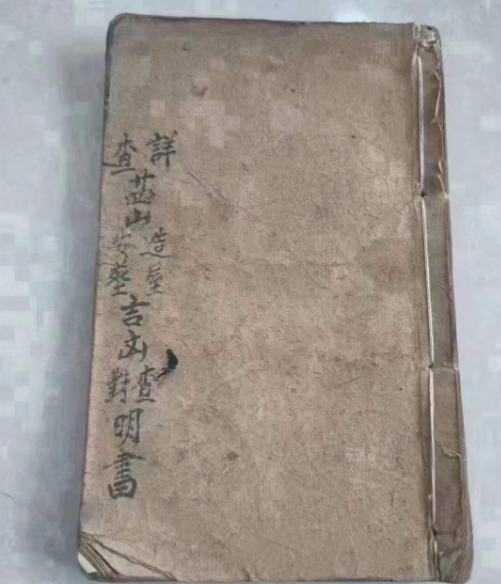 詳查山造屋安塟吉凶查對明書